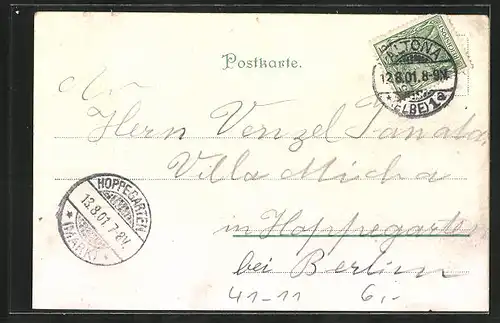 Postkarte.
ALTONA
12.8.01. 8-9N.
* (ELBE) 1a
An
Herrn Wenzel
Villa Micha
HOPPEGARTEN
13.8.01. 7-8V.
* (MARK) *
in Hoppegarten
bei Berlin
41-11 6.-